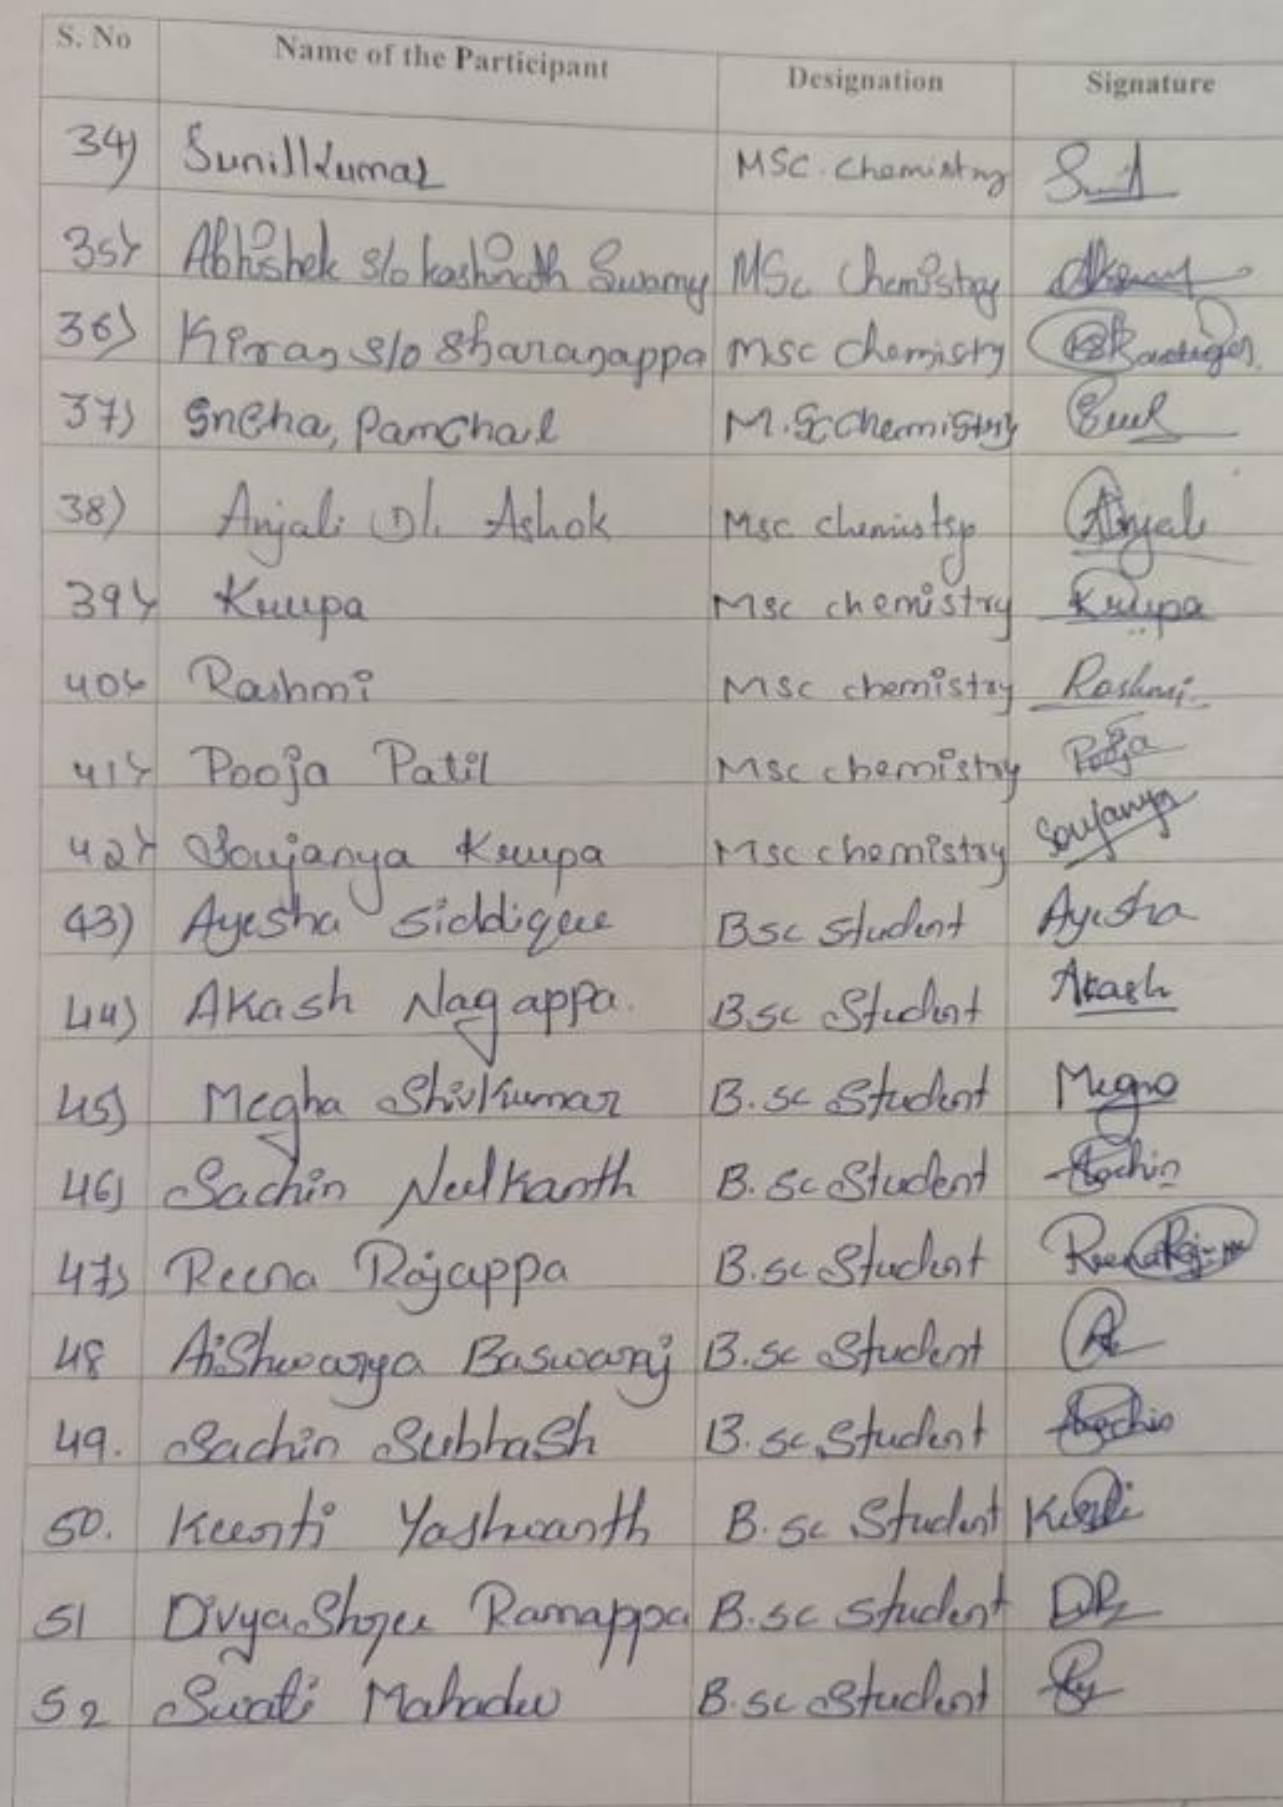 S. No Name of the Participant Designation Signature
34) Sunilkumar MSC. Chemistry
35) Abhishek S/o kashinath Swamy MSc Chemistry
36) Kiran S/o Sharanappa Msc Chemistry
37) Sneha, Panchal M.Sc Chemistry
38) Anjali D/. Ashok Msc chemistry Anjali
39) Krupa Msc chemistry Krupa
40) Rashmi Msc chemistry Rashmi
41) Pooja Patil Msc chemistry Pooja
42) Soujanya Krupa Msc chemistry Soujanya
43) Ayesha Siddique Bsc student Ayesha
44) Akash Nagappa. B.sc Student Akash
45) Megha Shivkumar B.sc Student Megha
46) Sachin Neelkanth B.sc Student Sachin
47) Reena Rajappa B.sc Student Reena
48 Aishwarya Baswaraj B.sc Student
49. Sachin Subhash B.sc Student Sachin
50. Keerti Yashwanth B.sc Student Keerti
51 Divyashree Ramappa B.sc student
52 Swati Mahadev B.sc Student